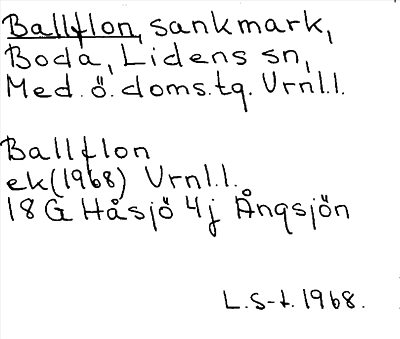 Ballflon, sankmark,
Boda, Lidens sn,
Med. ö. doms.tg. Vrnl.l.
Ballflon
ek (1968) Vrnl.l.
18 G Håsjö 4j Ångsjön
L.S-t. 1968.